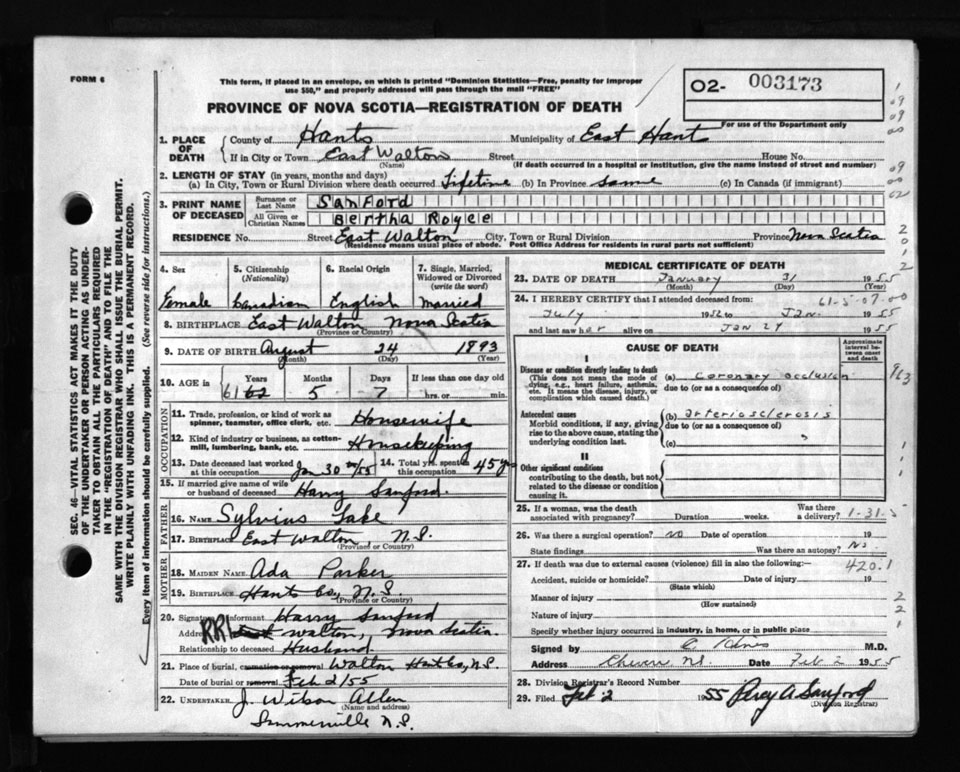 FORM 6
This form, if placed in an envelope, on which is printed "Dominion Statistics—Free, penalty for improper
use $50," and properly addressed will pass through the mail "FREE"
PROVINCE OF NOVA SCOTIA—REGISTRATION OF DEATH
O2- 003173
For use of the Department only
1. PLACE OF DEATH
County of Hants Municipality of East Hant
If in City or Town East Walton Street House No.
(Name) (If death occurred in a hospital or institution, give the name instead of street and number)
2. LENGTH OF STAY (in years, months and days)
(a) In City, Town or Rural Division where death occurred Lifetime (b) In Province Same (c) In Canada (if immigrant)
3. PRINT NAME OF DECEASED
Surname or Last Name Sanford
All Given or Christian Names Bertha Royce
RESIDENCE No. Street East Walton City, Town or Rural Division Province Nova Scotia
(Residence means usual place of abode. Post Office Address for residents in rural parts not sufficient)
4. Sex 5. Citizenship (Nationality) 6. Racial Origin 7. Single, Married, Widowed or Divorced (write the word)
Female Canadian English Married
8. BIRTHPLACE East Walton Nova Scotia
(Province or Country)
9. DATE OF BIRTH August 24 1893
(Month) (Day) (Year)
10. AGE in Years Months Days If less than one day old
61 62 5 7 hrs. or min.
OCCUPATION
11. Trade, profession, or kind of work as spinner, teamster, office clerk, etc. Housewife
12. Kind of industry or business, as cotton-mill, lumbering, bank, etc. Housekeeping
13. Date deceased last worked at this occupation Jan 30th/55 14. Total yrs. spent in this occupation 45 yrs
15. If married give name of wife or husband of deceased Harry Sanford.
FATHER
16. NAME Sylvius Lake
17. BIRTHPLACE East Walton N.S.
(Province or Country)
MOTHER
18. MAIDEN NAME Ada Parker
19. BIRTHPLACE Hants Co, N.S.
(Province or Country)
20. Signature of informant Harry Sanford
Address RR1 Walton, Nova Scotia.
Relationship to deceased Husband
21. Place of burial, cremation or removal Walton Hants Co, N.S.
Date of burial or removal Feb 2/55
22. UNDERTAKER J. Wilson Allen
(Name and address)
Summerville N.S.
MEDICAL CERTIFICATE OF DEATH
23. DATE OF DEATH January 31 1955
(Month) (Day)
24. I HEREBY CERTIFY that I attended deceased from: 61-5-07-00
July 1952 to Jan. 1955
and last saw her alive on Jan 29 1955
CAUSE OF DEATH
Approximate interval between onset and death
I
Disease or condition directly leading to death
(This does not mean the mode of dying, e.g., heart failure, asthenia, etc. It means the disease, injury, or complication which caused death.)
(a) Coronary occlusion
due to (or as a consequence of)
Antecedent causes
Morbid conditions, if any, giving rise to the above cause, stating the underlying condition last.
(b) arteriosclerosis
due to (or as a consequence of)
(c)
II
Other significant conditions
contributing to the death, but not related to the disease or condition causing it.
25. If a woman, was the death associated with pregnancy? Duration weeks. Was there a delivery? 1-31-5
26. Was there a surgical operation? No Date of operation 19
State findings Was there an autopsy? No.
27. If death was due to external causes (violence) fill in also the following:— 420.1
Accident, suicide or homicide? Date of injury 19
(State which)
Manner of injury
(How sustained)
Nature of injury
Specify whether injury occurred in industry, in home, or in public place
Signed by M.D.
Address N.S. Date Feb 2 1955
28. Division Registrar's Record Number
29. Filed Feb 2 1955 Percy A Sanford
(Division Registrar)
SEC. 46—VITAL STATISTICS ACT MAKES IT THE DUTY
OF THE UNDERTAKER OR PERSON ACTING AS UNDER-
TAKER TO OBTAIN ALL THE PARTICULARS REQUIRED
IN THE "REGISTRATION OF DEATH" AND TO FILE THE
SAME WITH THE DIVISION REGISTRAR WHO SHALL ISSUE THE BURIAL PERMIT.
WRITE PLAINLY WITH UNFADING INK. THIS IS A PERMANENT RECORD.
Every item of information should be carefully supplied. (See reverse side for instructions.)